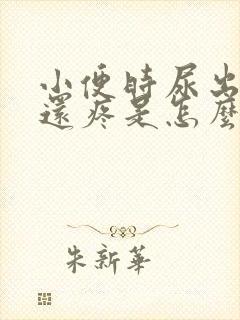 小便時尿出
還疼是怎麼
朱新華